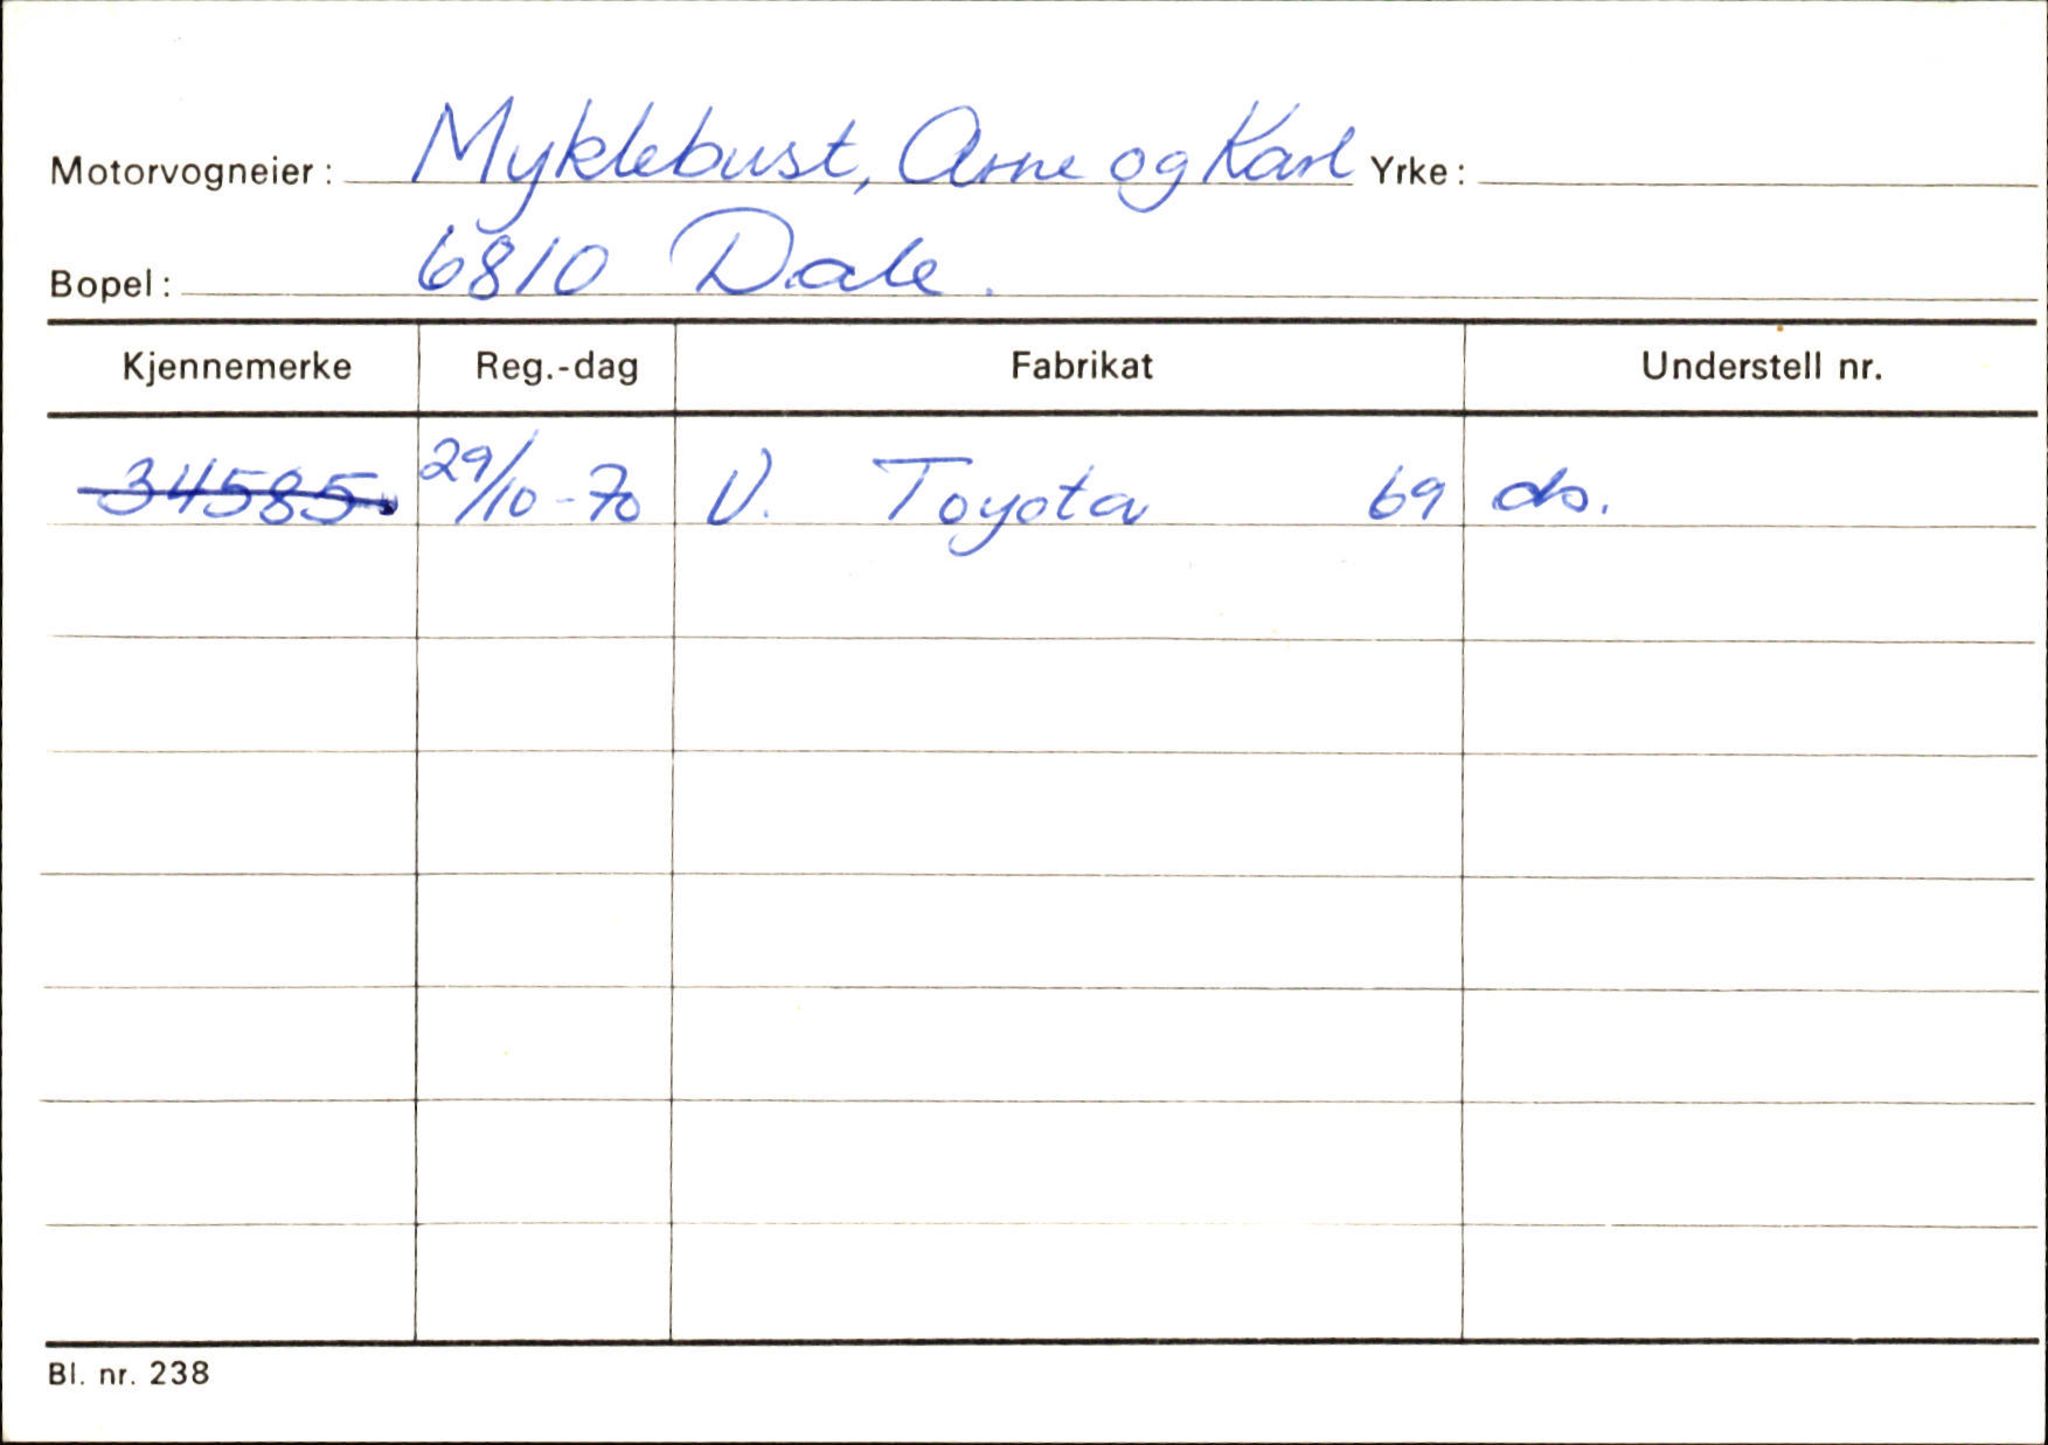 Motorvogneier: Myklebust, Arne og Karl Yrke:
Bopel: 6810 Dale.
Kjennemerke Reg.-dag Fabrikat Understell nr.
34585 29/10-70 V. Toyota 69 ds.
Bl. nr. 238